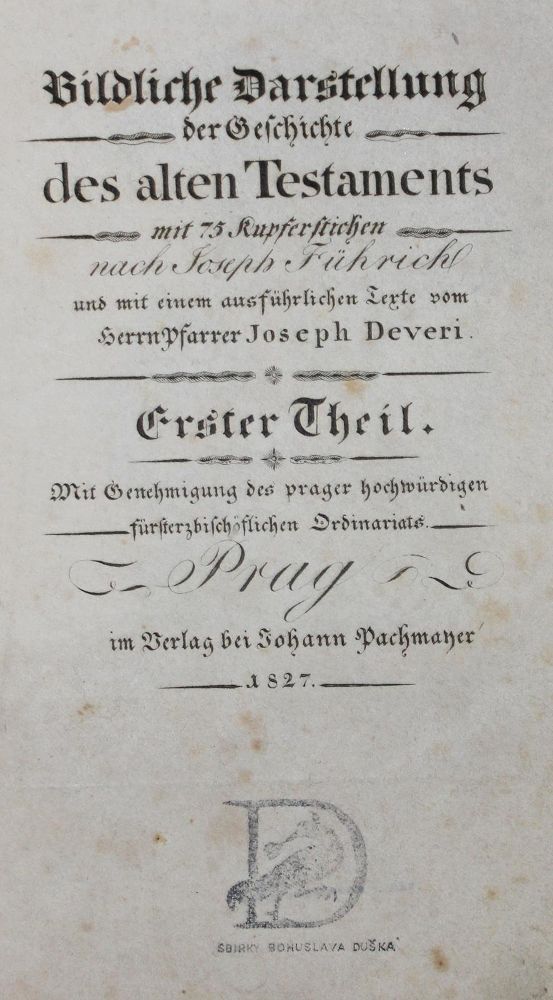 Bildliche Darstellung
der Geschichte
des alten Testaments
mit 75 Kupferstichen
nach Joseph Führich
und mit einem ausführlichen Texte vom
Herrn Pfarrer Joseph Deveri.
Erster Theil.
Mit Genehmigung des prager hochwürdigen
fürsterzbischöflichen Ordinariats.
Prag
im Verlag bei Johann Pachmayer
1827.
D
SBIRKY BOHUSLAVA DUŠKA